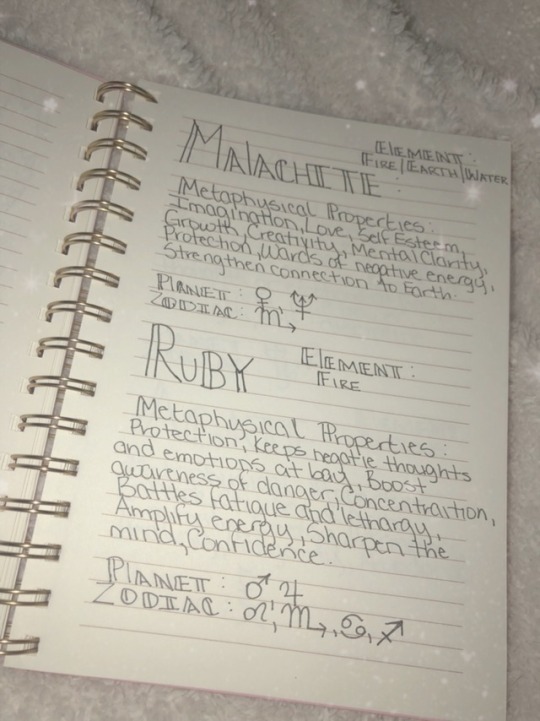 MALACHITE :
ELEMENT :
FIRE/EARTH/WATER
Metaphysical Properties :
Imagination, Love, Self Esteem,
Growth, Creativity, Mental Clarity,
Protection, Wards of negative energy,
Strengthen connection to Earth.
PLANET : ♀ ♆
ZODIAC : ♏
RUBY
ELEMENT :
FIRE
Metaphysical Properties :
Protection, Keeps negatie thoughts
and emotions at bay, Boost
awareness of danger, Concentraition,
Battles fatigue and lethargy,
Amplify energy, Sharpen the
mind, Confidence.
PLANET : ♂ ♃
ZODIAC : ♌, ♏, ♋, ♐